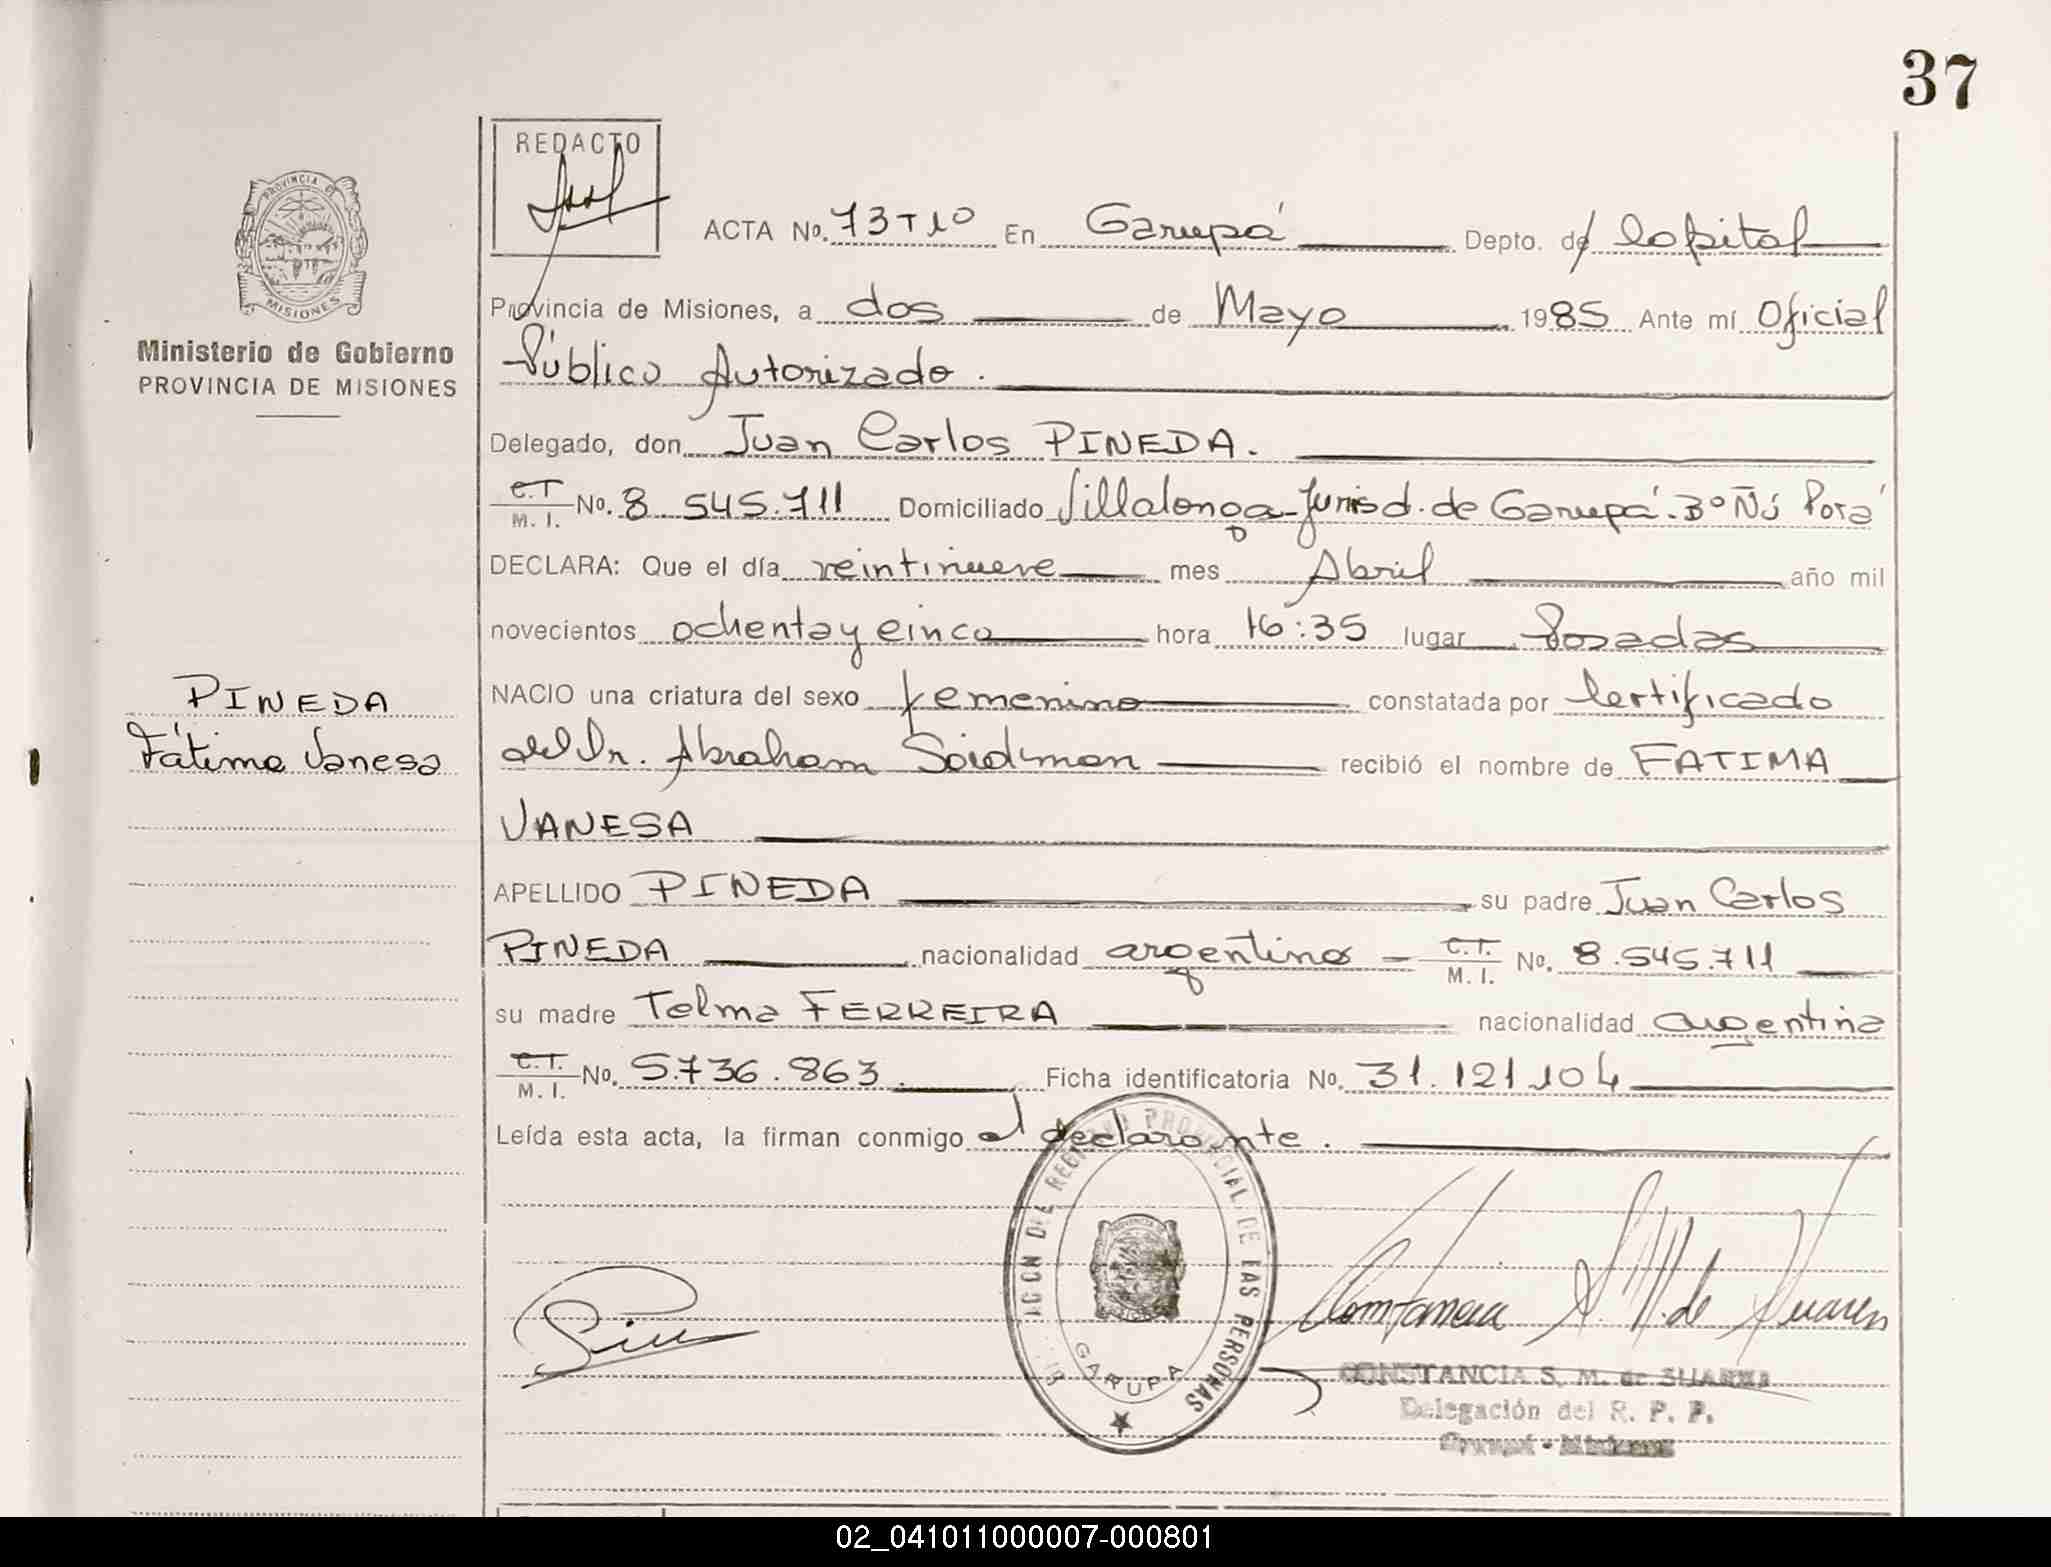 37
REDACTO
PROVINCIA DE
MISIONES
Ministerio de Gobierno
PROVINCIA DE MISIONES
ACTA No. 73 T 1º En Garupá Depto. de Capital
Provincia de Misiones, a dos de Mayo 1985 Ante mí Oficial
Público Autorizado.
Delegado, don Juan Carlos PINEDA.
C.T. M. I. No. 8.545.711 Domiciliado Villalonga-Jurisd. de Garupá. Bº Ñú Porá
DECLARA: Que el día veintinueve mes Abril año mil
novecientos ochenta y cinco hora 16:35 lugar Posadas
NACIO una criatura del sexo femenino constatada por Certificado
del Dr. Abraham recibió el nombre de FATIMA
VANESA
PINEDA
Fátima Vanesa
APELLIDO PINEDA su padre Juan Carlos
PINEDA nacionalidad argentina C.T. M. I. No. 8.545.711
su madre Telma FERREIRA nacionalidad argentina
C.T. M. I. No. 5.736.863. Ficha identificatoria No. 31.121.104
Leída esta acta, la firman conmigo el declarante.
DEL REGISTRO PROVINCIAL DE LAS PERSONAS
GARUPA
Constancia S. M. de Suarez
CONSTANCIA S. M. de SUAREZ
Delegación del R. P. P.
Garupá - Misiones
02_041011000007-000801